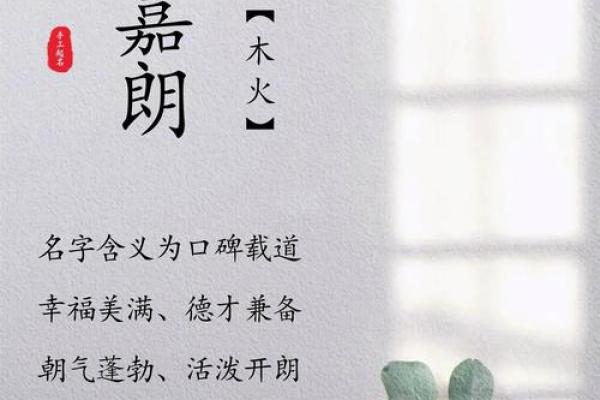 嘉朗
【木火】
手工起名
名字含义为口碑载道
幸福美满、德才兼备
朝气蓬勃、活泼开朗